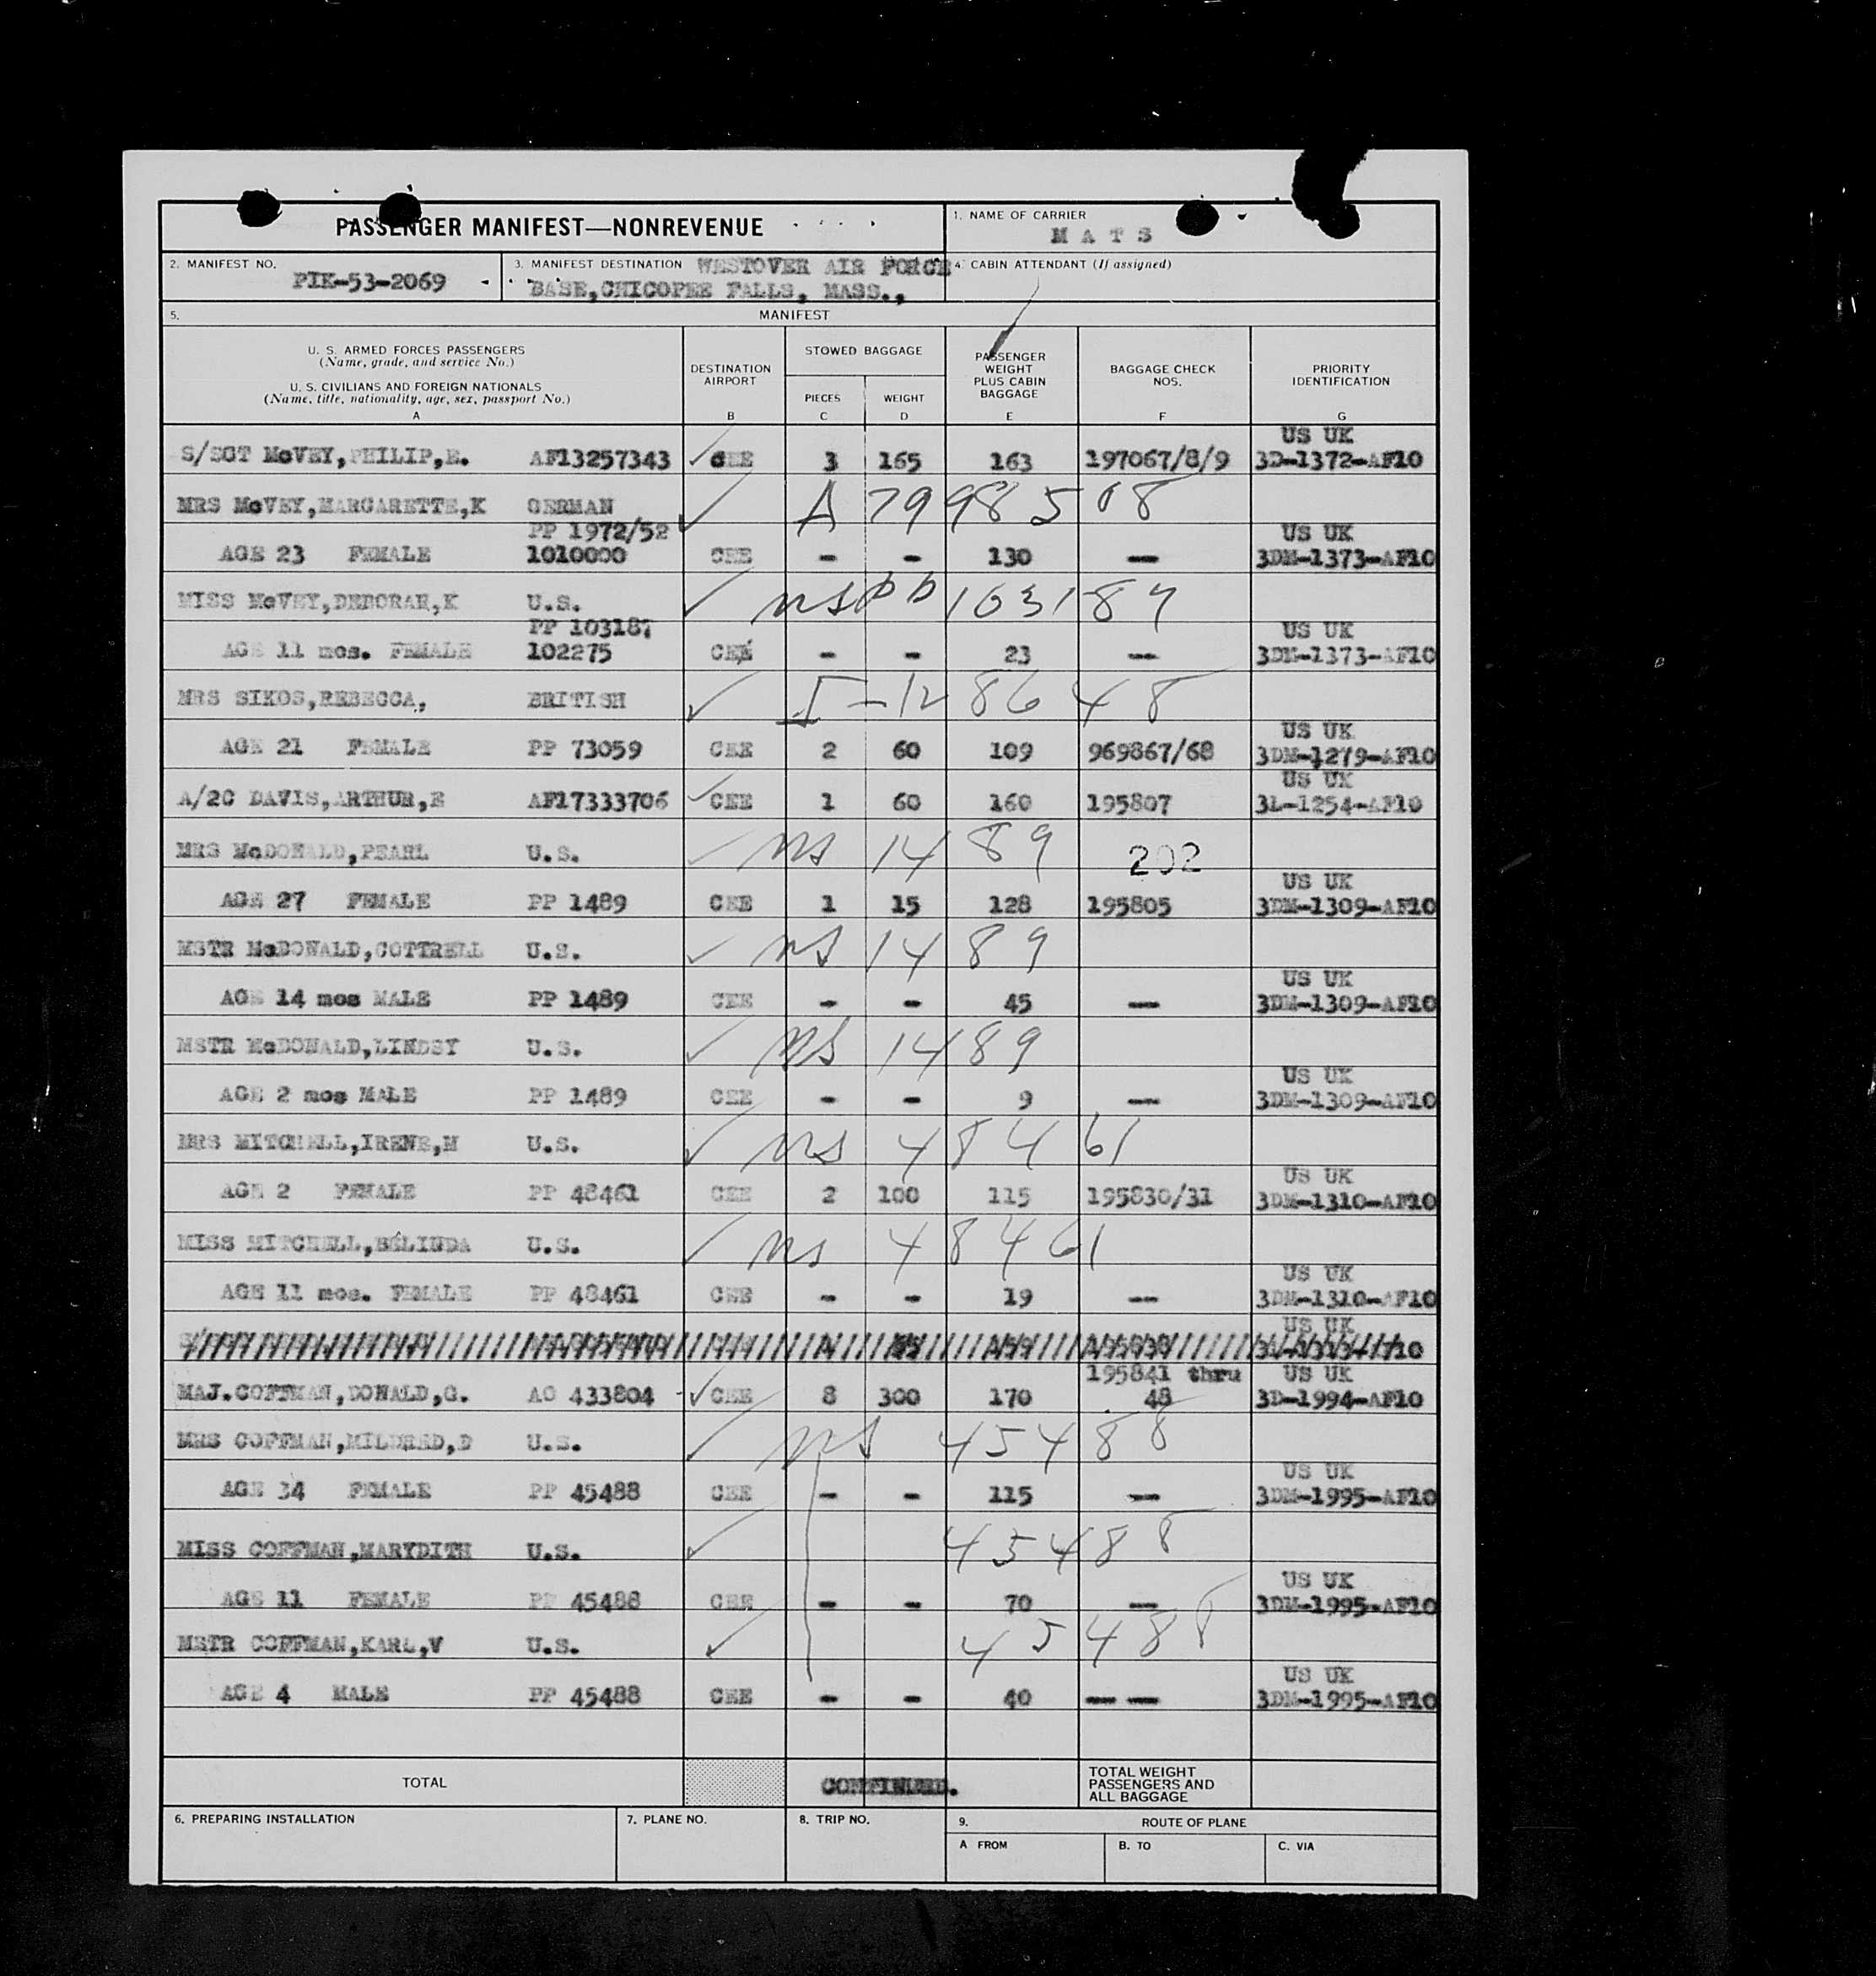 PASSENGER MANIFEST—NONREVENUE
1. NAME OF CARRIER
M A T S
2. MANIFEST NO.
PIK-53-2069
3. MANIFEST DESTINATION WESTOVER AIR FORCE
BASE,CHICOPEE FALLS, MASS.,
4. CABIN ATTENDANT (If assigned)
5. MANIFEST
U. S. ARMED FORCES PASSENGERS
(Name, grade, and service No.)
U. S. CIVILIANS AND FOREIGN NATIONALS
(Name, title, nationality, age, sex, passport No.)
A
DESTINATION
AIRPORT
B
STOWED BAGGAGE
PIECES
C
WEIGHT
D
PASSENGER
WEIGHT
PLUS CABIN
BAGGAGE
E
BAGGAGE CHECK
NOS.
F
PRIORITY
IDENTIFICATION
G
US UK
S/SGT McVEY,PHILIP,E. AF13257343 ✓ CEE 3 165 163 197067/8/9 3D-1372-AF10
MRS McVEY,MARGARETTE,K GERMAN ✓ A 7998508
PP 1972/52 US UK
AGE 23 FEMALE 1010000 CEE - - 130 — 3DM-1373-AF10
MISS McVEY,DEBORAH,K U.S. ✓ ns pp 103187
PP 103187 US UK
AGE 11 mos. FEMALE 102275 CEE - - 23 — 3DM-1373-AF10
MRS SIKOS,REBECCA, BRITISH ✓ I-128648
US UK
AGE 21 FEMALE PP 73059 CEE 2 60 109 969867/68 3DM-1279-AF10
US UK
A/2C DAVIS,ARTHUR,E AF17333706 ✓ CEE 1 60 160 195807 3L-1254-AF10
MRS McDONALD,PEARL U.S. ✓ ns 1489 202
US UK
AGE 27 FEMALE PP 1489 CEE 1 15 128 195805 3DM-1309-AF10
MSTR McDONALD,COTTRELL U.S. ✓ ns 1489
US UK
AGE 14 mos MALE PP 1489 CEE - - 45 — 3DM-1309-AF10
MSTR McDONALD,LINDSY U.S. ✓ ns 1489
US UK
AGE 2 mos MALE PP 1489 CEE - - 9 — 3DM-1309-AF10
MRS MITCHELL,IRENE,M U.S. ✓ ns 48461
US UK
AGE 2 FEMALE PP 48461 CEE 2 100 115 195830/31 3DM-1310-AF10
MISS MITCHELL,BELINDA U.S. ✓ ns 48461
US UK
AGE 11 mos. FEMALE PP 48461 CEE - - 19 — 3DM-1310-AF10
US UK
195841 thru US UK
MAJ.COFFMAN,DONALD,G. AO 433804 ✓ CEE 8 300 170 48 3D-1994-AF10
MRS COFFMAN,MILDRED,D U.S. ✓ ns 45488
US UK
AGE 34 FEMALE PP 45488 CEE - - 115 — 3DM-1995-AF10
MISS COFFMAN,MARYDITH U.S. ✓ 45488
US UK
AGE 11 FEMALE PP 45488 CEE - - 70 — 3DM-1995-AF10
MSTR COFFMAN,KARL,V U.S. ✓ 45488
US UK
AGE 4 MALE PP 45488 CEE - - 40 — — 3DM-1995-AF10
TOTAL
CONTINUED.
TOTAL WEIGHT
PASSENGERS AND
ALL BAGGAGE
6. PREPARING INSTALLATION
7. PLANE NO.
8. TRIP NO.
9. ROUTE OF PLANE
A FROM
B. TO
C. VIA